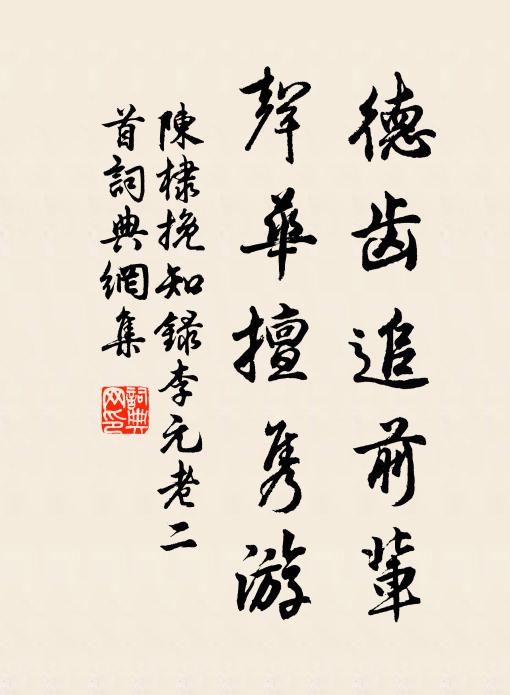 德齿追前輩
聲華擅隽游
陳棣挽知録李元老二
首詞典網集
詞典网印